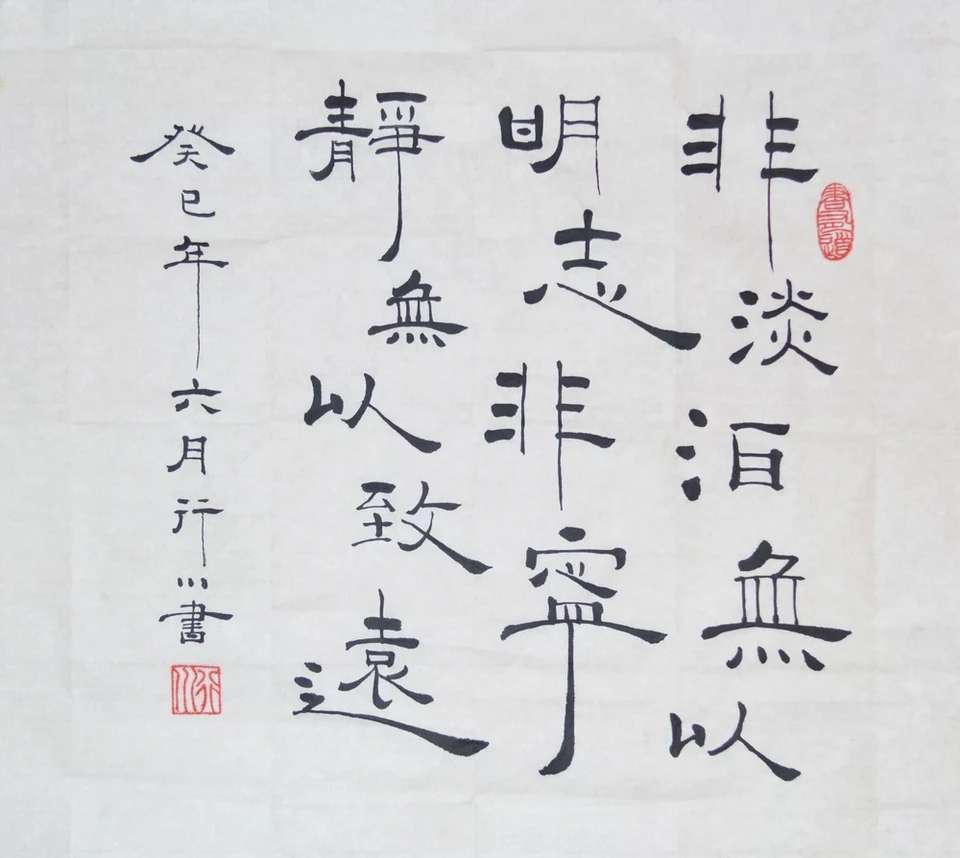 非淡泊無以
明志非寧
靜無以致遠
癸巳年六月行川書